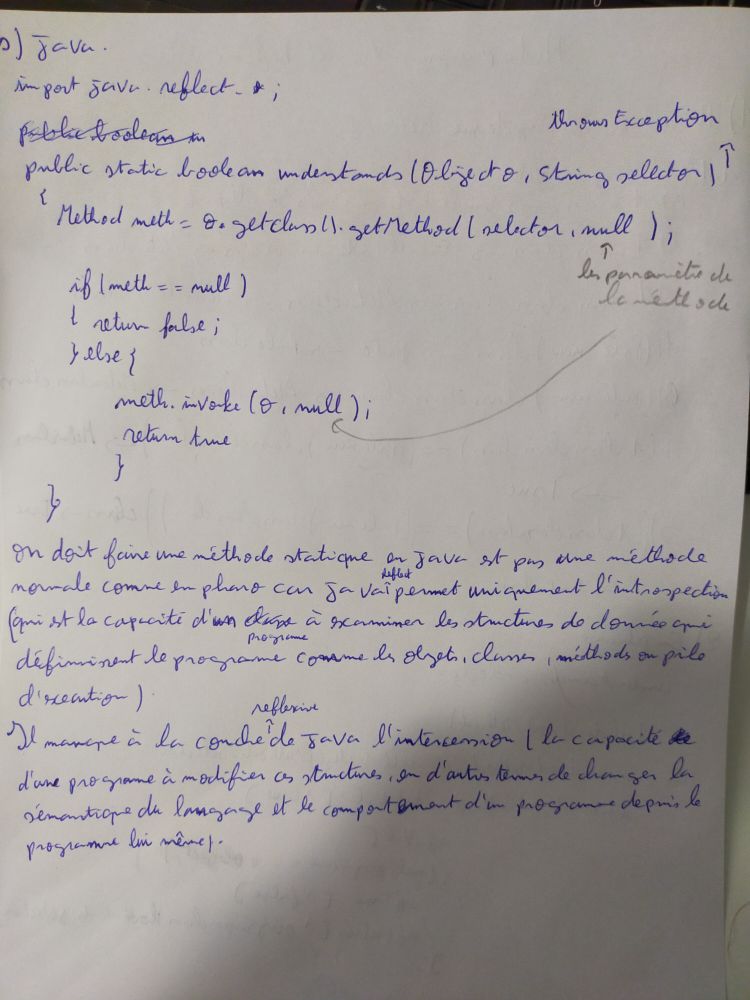 b) Java.
import java.reflect.*;
public boolean un
throws Exception
public static boolean understands (Object o, String selector) ↑
{ Method meth = o.getclass().getMethod( selector, null );
↑
les paramètre de
la méthode
if (meth == null)
{ return false;
} else {
meth.invoke (o, null);
return true
}
}
on doit faire une méthode statique en java est pas une méthode
reflect
normale comme en pharo car java↑permet uniquement l'introspection
(qui est la capacité d'un à examiner les structures de donnée qui
programme
définissent le programme comme les objets, classes, méthods ou pile
d'execution)
reflexive
Il manque à la couche↑de java l'intercession ( la capacité
d'un programe à modifier ces structures, en d'autres termes de changer la
sémantique du langage et le comportement d'un programme depuis le
programme lui même).